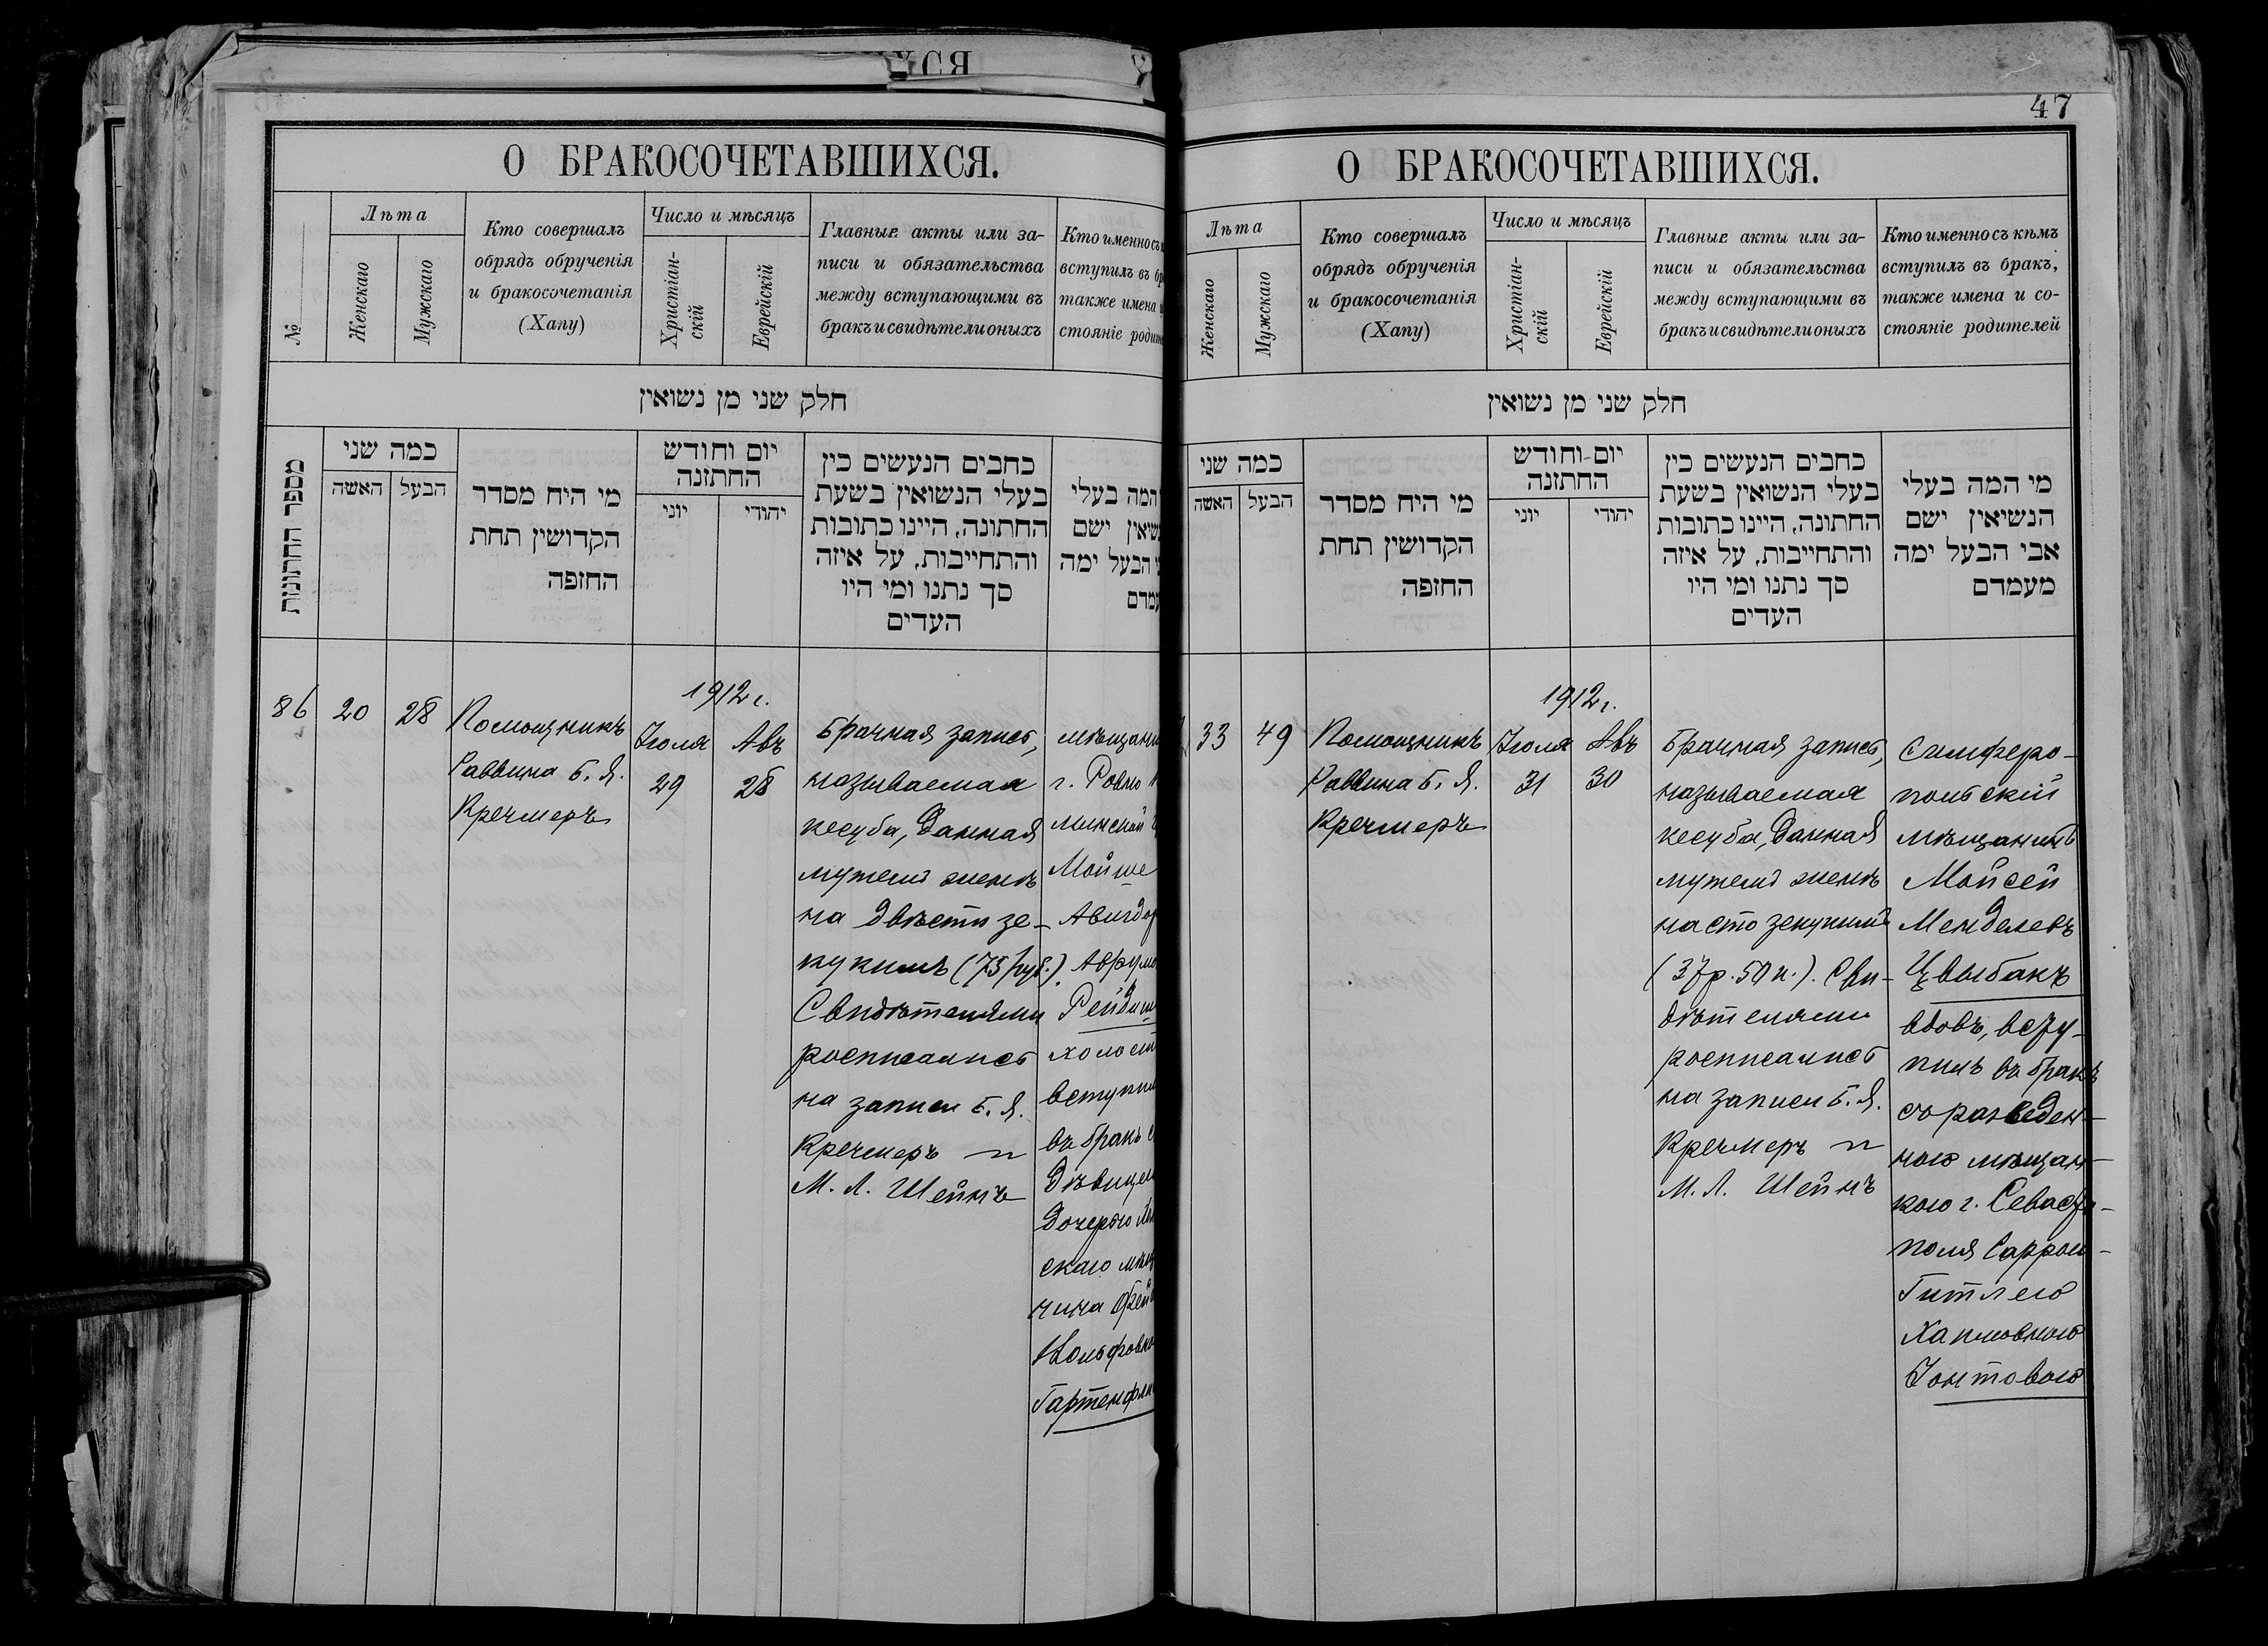 О БРАКОСОЧЕТАВШИХСЯ.
№
Лѣта
Женскаго
Мужскаго
Кто совершалъ
обрядъ обрученія
и бракосочетанія
(Хапу)
Число и мѣсяцъ
Христіан-
скій
Еврейскій
Главные акты или за-
писи и обязательства
между вступающими въ
бракъ и свидѣтели оныхъ
Кто именно съ
вступилъ въ бр
также имена
стояніе родит
חלק שני מן נשואין
מספר החתונות
כמה שני
האשה
הבעל
מי היח מסדר
הקדושין תחת
החזפה
יום וחודש
החתזנה
יוני
יהודי
כחבים הנעשים כין
בעלי הנשואין בשעת
החתונה, היינו כתובות
והתחייבות, על איזה
סך נתנו ומי היו
העדים
המה בעלי
ישם
הבעל ימה
86
20
28
Помощникъ
Раввина Б. Я.
Кречмеръ
1912 г.
Іюля
29
Авъ
28
Брачная запись,
называемая
кесуба, данная
мужемъ женѣ
на двѣсти зе-
кукимъ (75 руб.).
Свидѣтелями
росписались
на записи Б. Я.
Кречмеръ и
М. Л. Шейнъ
мѣщани
г. Ровно
Минской
Мойше
Авигдор
Аврумо
Рейдиш
холост
вступил
въ бракъ с
дѣвицей
дочерью
скаго мѣщ
нина Фрей
Вольфовно
Гартенфл
47
О БРАКОСОЧЕТАВШИХСЯ.
Лѣта
Женскаго
Мужскаго
Кто совершалъ
обрядъ обрученія
и бракосочетанія
(Хапу)
Число и мѣсяцъ
Христіан-
скій
Еврейскій
Главные акты или за-
писи и обязательства
между вступающими въ
бракъ и свидѣтели оныхъ
Кто именно съ кѣмъ
вступилъ въ бракъ,
также имена и со-
стояніе родителей
חלק שני מן נשואין
כמה שני
האשה
הבעל
מי היח מסדר
הקדושין תחת
החזפה
יום וחודש
החתזנה
יוני
יהודי
כחבים הנעשים כין
בעלי הנשואין בשעת
החתונה, היינו כתובות
והתחייבות, על איזה
סך נתנו ומי היו
העדים
מי המה בעלי
הנשיאין ישם
אבי הבעל ימה
מעמדם
33
49
Помощникъ
Раввина Б. Я.
Кречмеръ
1912 г.
Іюля
31
Авъ
30
Брачная запись,
называемая
кесуба, данная
мужемъ женѣ
на сто зекукимъ
(37 р. 50 к.). Сви-
дѣтелями
росписались
на записи Б. Я.
Кречмеръ и
М. Л. Шейнъ
Симферо-
польскій
мѣщанинъ
Мойсей
Менделевъ
Цвыбакъ
вдовъ, всту-
пилъ въ бракъ
съ разведен-
ною мѣщан-
кою г. Севасто-
поля Саррою-
Гитлею
Хаимовною
Іонтовою